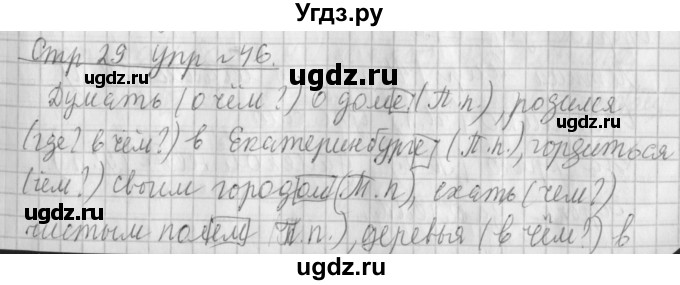 Угдз.ру
Стр 29 упр №46.
ugdz.ru
ugdz.ru
ugdz.ru
Думать (о чём?) о доме (П.п.), родился
(где? в чём?) в Екатеринбурге (П.п.), гордиться
ugdz.ru
(чем?) своим городом (Т.п), ехать (чем?)
чистым полем Т.п.), деревья (в чём?) в
ugdz.ru
ugdz.ru
ugdz.ru